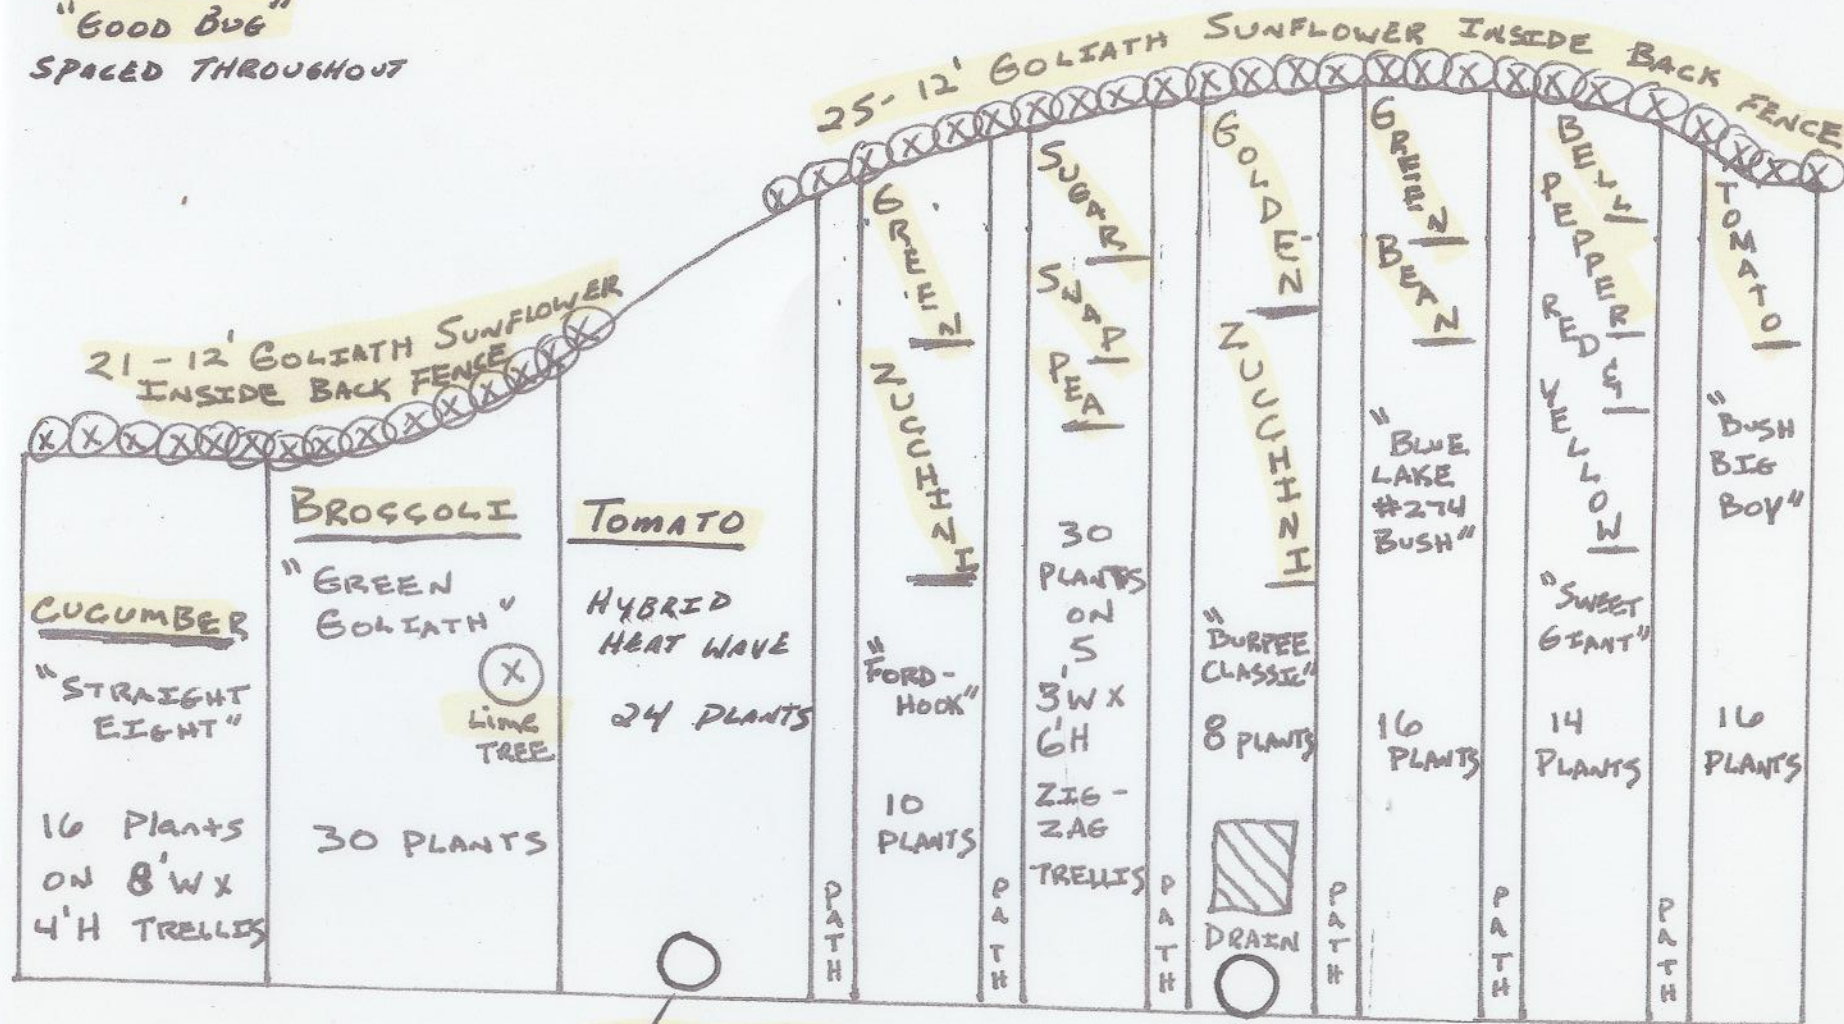 "GOOD BUG"
SPACED THROUGHOUT
25-12' GOLIATH SUNFLOWER INSIDE BACK FENCE
21-12' GOLIATH SUNFLOWER
INSIDE BACK FENCE
CUCUMBER
"STRAIGHT
EIGHT"
16 Plants
ON 8'W X
4'H TRELLIS
BROSCOLI
"GREEN
GOLIATH"
X
Lime
TREE
30 PLANTS
TOMATO
HYBRID
HEAT WAVE
24 PLANTS
PATH
GREEN
ZUCCHINI
"FORD-
HOOK"
10
PLANTS
PATH
SUGAR
SNAP
PEA
30
PLANTS
ON
5
3'W X
6'H
ZIG-
ZAG
TRELLIS
PATH
GOLDEN
ZUCCHINI
"BURPEE
CLASSIC"
8 PLANTS
DRAIN
PATH
GREEN
BEAN
"BLUE
LAKE
#274
BUSH"
16
PLANTS
PATH
BELL
PEPPER
RED &
YELLOW
"SWEET
GIANT"
14
PLANTS
PATH
TOMATO
"BUSH
BIG
BOY"
16
PLANTS